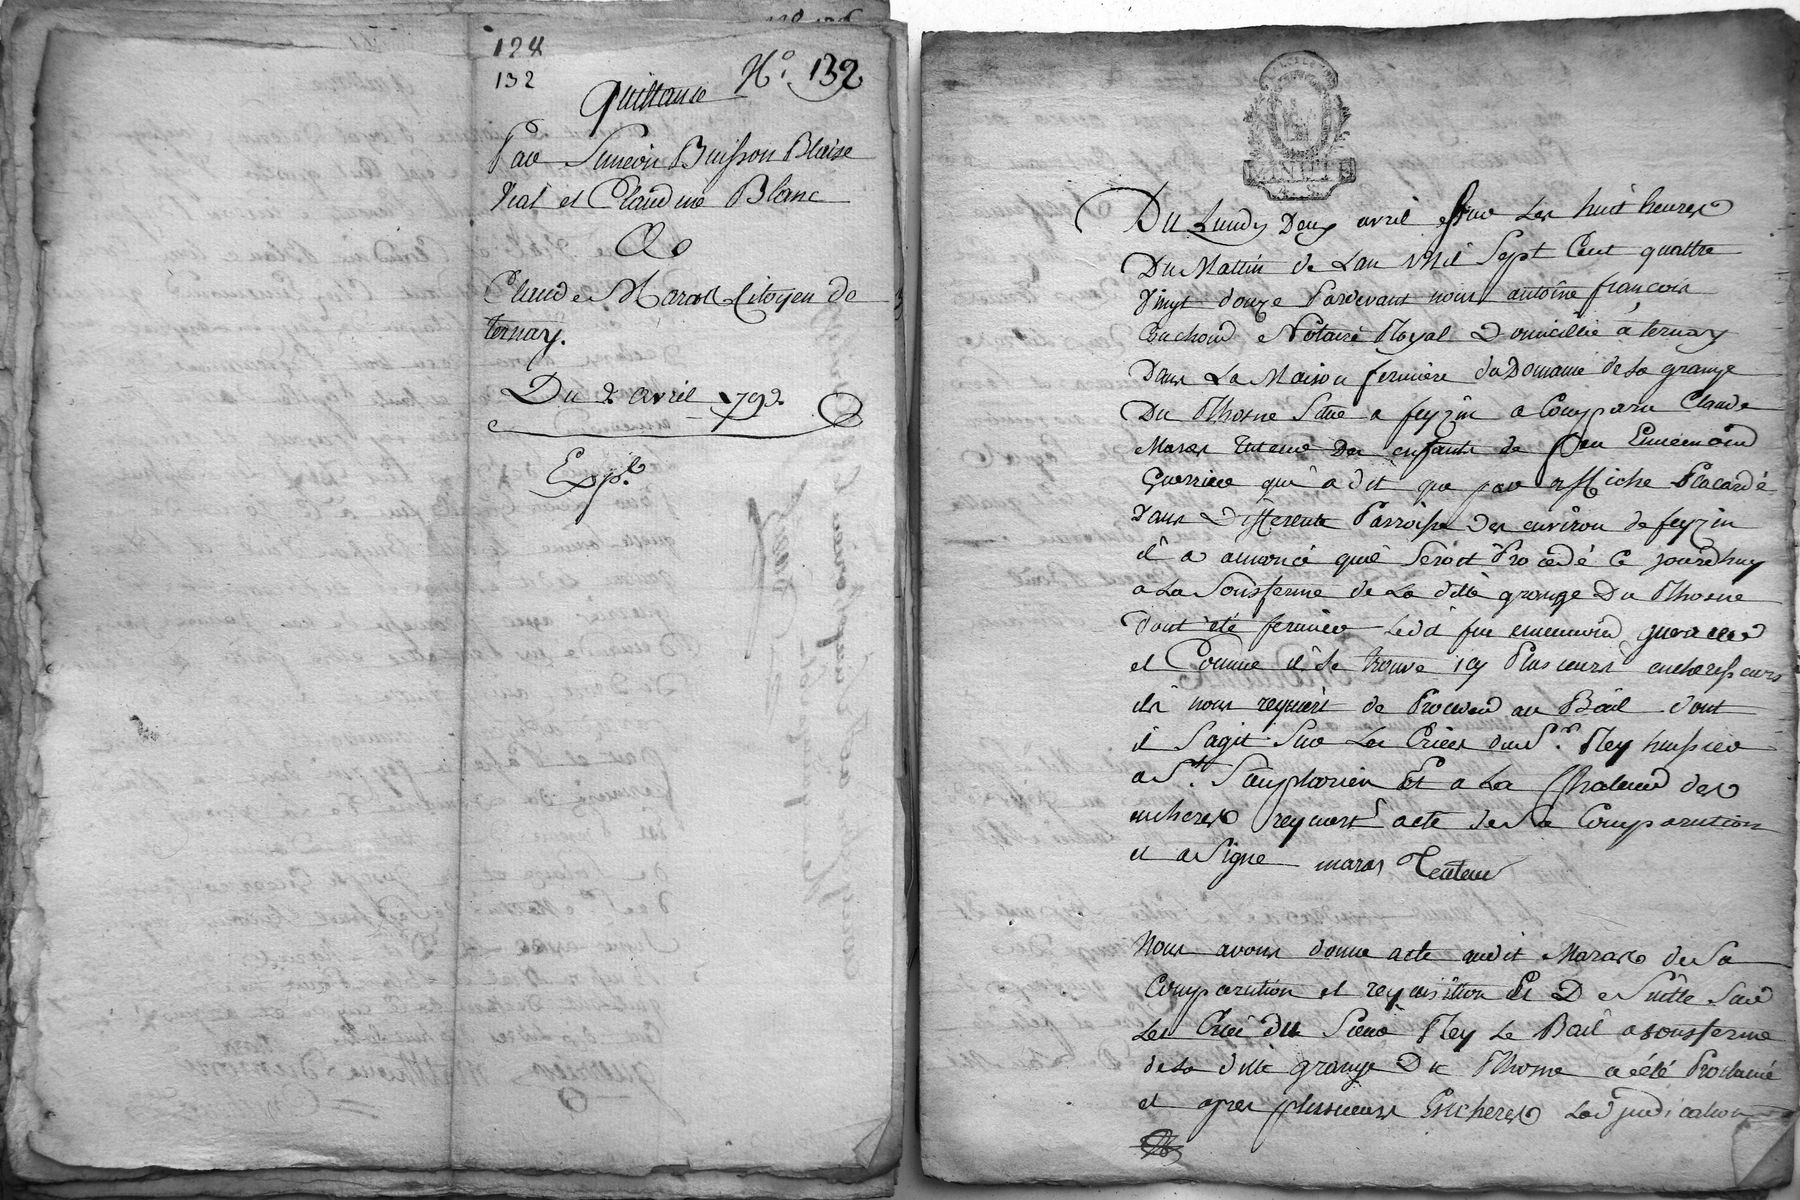 124
132
N° 132
Quittance
Par Simeon Buisson Blaise
Vial et Claudine Blanc
A
Claude Maras Citoyen de
ternay.
Du 2 avril 1792.
Exp.
MINUTE
Du Lundy Deux avril sur les huit heures
Du Mattin de Lan Mil Sept Cent quattre
Vingt douze Pardevant nous antoine françois
Notaire Royal Domicillié a ternay
Dans La Maison fermiere du Domaine de la grange
Du Rhosne Situé a feyzin a Comparu Claude
Maras des enfants de feu Ennemond
Guerrier qui a dit que par affiche Placardé
Dans Differente Parroisse des environ de feyzin
il a annoncé quil Seroit Procédé ce jourdhuy
a La Sousferme de La ditte grange Du Rhosne
dont été fermier Led fut ennemond guerrier
et Comme il Se trouve icy Plusieurs encherisseurs
ils nous requiert de Proceder au Bail dont
il Sagit Sur Les Criées du Sr. Rey huissier
a St. Simphorien Et a La Chaleur des
encheres requert acte de Sa Comparution
et a Signé maras
Nous avons donné acte audit Maras de Sa
Comparution et requisition Et De Suitte Sur
Les Criée du Sieur Rey Le Bail a sousferme
de La ditte grange Du Rhosne a été Proclamé
et apres plusieurs Encheres Ladjudication